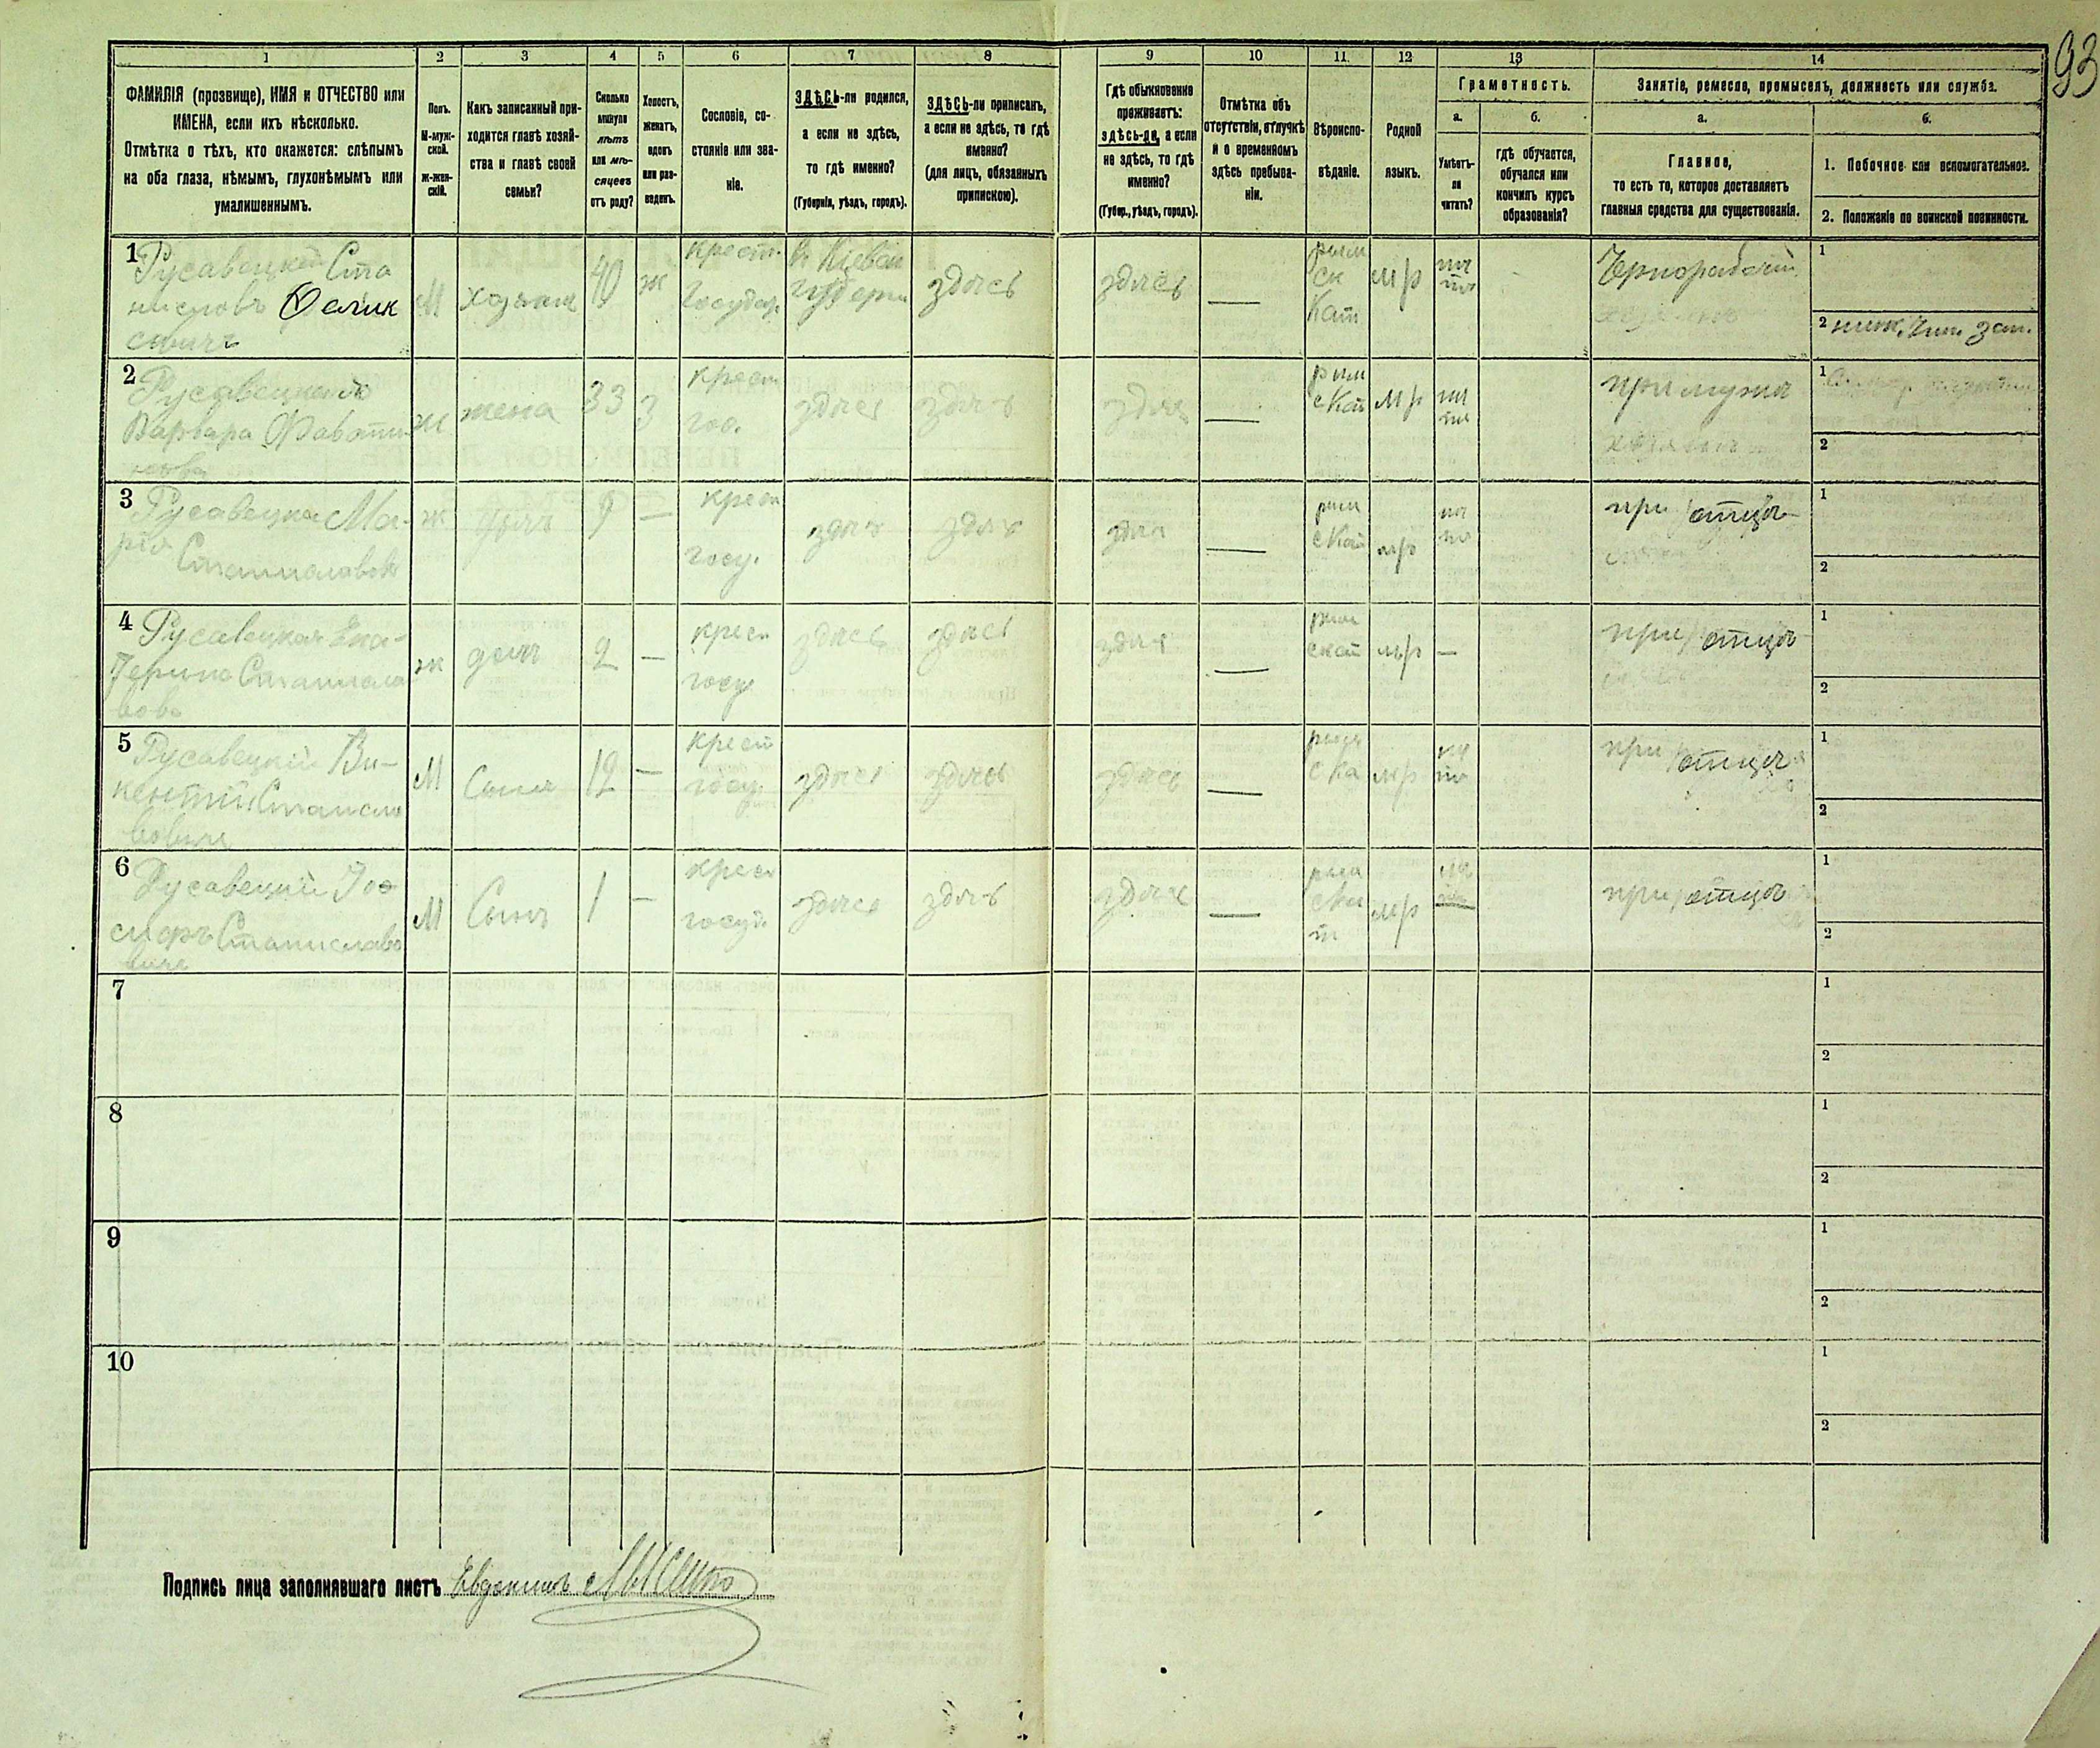 93
1 2 3 4 5 6 7 8 9 10 11 12 13 14
ФАМИЛІЯ (прозвище), ИМЯ и ОТЧЕСТВО или
ИМЕНА, если ихъ нѣсколько.
Отмѣтка о тѣхъ, кто окажется: слѣпымъ
на оба глаза, нѣмымъ, глухонѣмымъ или
умалишеннымъ.
Полъ.
М-муж-
ской.
Ж-жен-
скій.
Какъ записанный при-
ходится главѣ хозяй-
ства и главѣ своей
семьи?
Сколько
минуло
лѣтъ
или мѣ-
сяцевъ
отъ роду?
Холостъ,
женатъ,
вдовъ
или раз-
веденъ.
Сословіе, со-
стояніе или зва-
ніе.
ЗДѢСЬ-ли родился,
а если не здѣсь,
то гдѣ именно?
(Губернія, уѣздъ, городъ).
ЗДѢСЬ-ли приписанъ,
а если не здѣсь, то гдѣ
именно?
(для лицъ, обязанныхъ
припискою).
Гдѣ обыкновенно
проживаетъ:
здѣсь-ли, а если
не здѣсь, то гдѣ
именно?
(Губер., уѣздъ, городъ).
Отмѣтка объ
отсутствіи, отлучкѣ
и о временномъ
здѣсь пребыва-
ніи.
Вѣроиспо-
вѣданіе.
Родной
языкъ.
Грамотность.
а.
Умѣетъ-
ли
читать?
б.
гдѣ обучается,
обучался или
кончилъ курсъ
образованія?
Занятіе, ремесло, промыселъ, должность или служба.
а.
Главное,
то есть то, которое доставляетъ
главныя средства для существованія.
б.
1. Побочное или вспомогательное.
2. Положеніе по воинской повинности.
1
Русавецкий Ста
ниславъ Феликсовичъ
М хозяинъ 40 ж
крест.
государ.
въ Кіевской
губерніи
здѣсь здѣсь —
рим
ск
Кат
м/р
Чернорабочій
1
2
2
Русавецкая
Варвара
ж жена 33 З
крест
гос.
здѣсь здѣсь здѣсь —
рим
скат
м/р
при мужѣ
1
2
3
Русавецкая Ма-
рія
Станиславова
ж дочь 9 —
крест
госу.
здѣсь здѣсь здѣсь —
рим
скат
м/р
при отцѣ
1
2
4
Русавецкая Ека-
терина Станисла
вова
ж дочь 2 —
крест
госу
здѣсь здѣсь здѣсь —
рим
скат
м/р —
при отцѣ
1
2
5
Русавецкій Ви-
кентій Станисла
вовичъ
М Сынъ 12 —
крест
госу
здѣсь здѣсь здѣсь —
римс
ска
м/р
при отцѣ
1
2
6
Русавецкій Іо
сифъ Станиславо
вичъ
М Сынъ 1 —
крест
госуд.
здѣсь здѣсь здѣсь —
рим
ска
т
м/р
при отцѣ
1
2
7
1
2
8
1
2
9
1
2
10
1
2
Подпись лица заполнявшаго листъ Евдокимъ